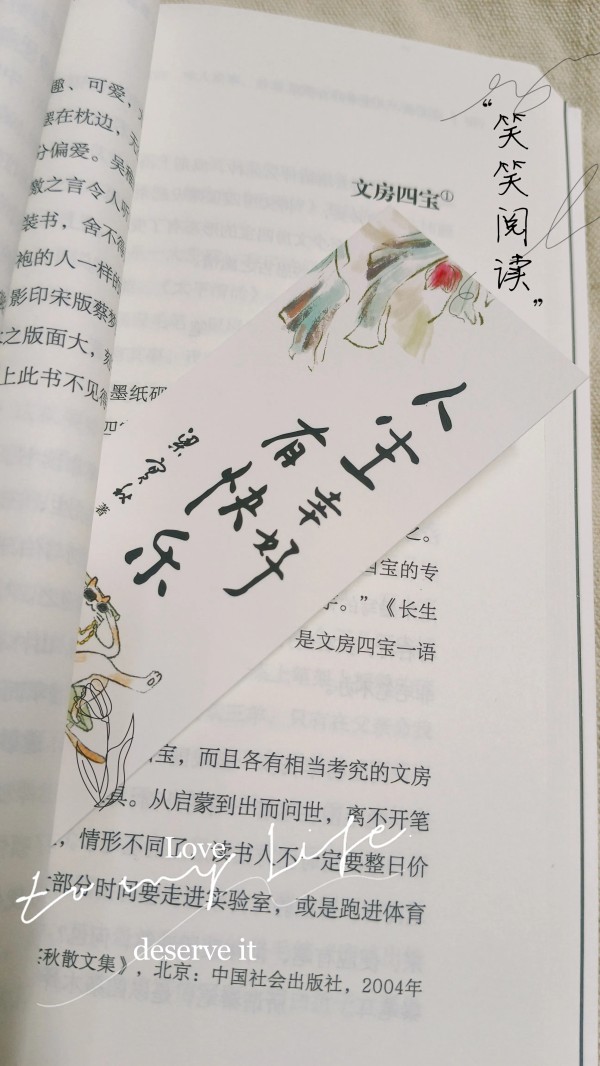 趣、可爱，
在枕边，
分偏爱。吴
之言令人
装书，舍不得
袍的人一样的
影印宋版蔡
之版面大，
上此书不见得
“笑笑阅读”
文房四宝①
墨纸砚
人生
幸好
有快乐
梁实秋 著
四宝的专
。”《长生
是文房四宝一语
宝，而且各有相当考究的文房
具。从启蒙到出而问世，离不开笔
，情形不同了，读书人不一定要整日价
部分时间要走进实验室，或是跑进体育
秋散文集》，北京：中国社会出版社，2004年
Love
to my Life
deserve it